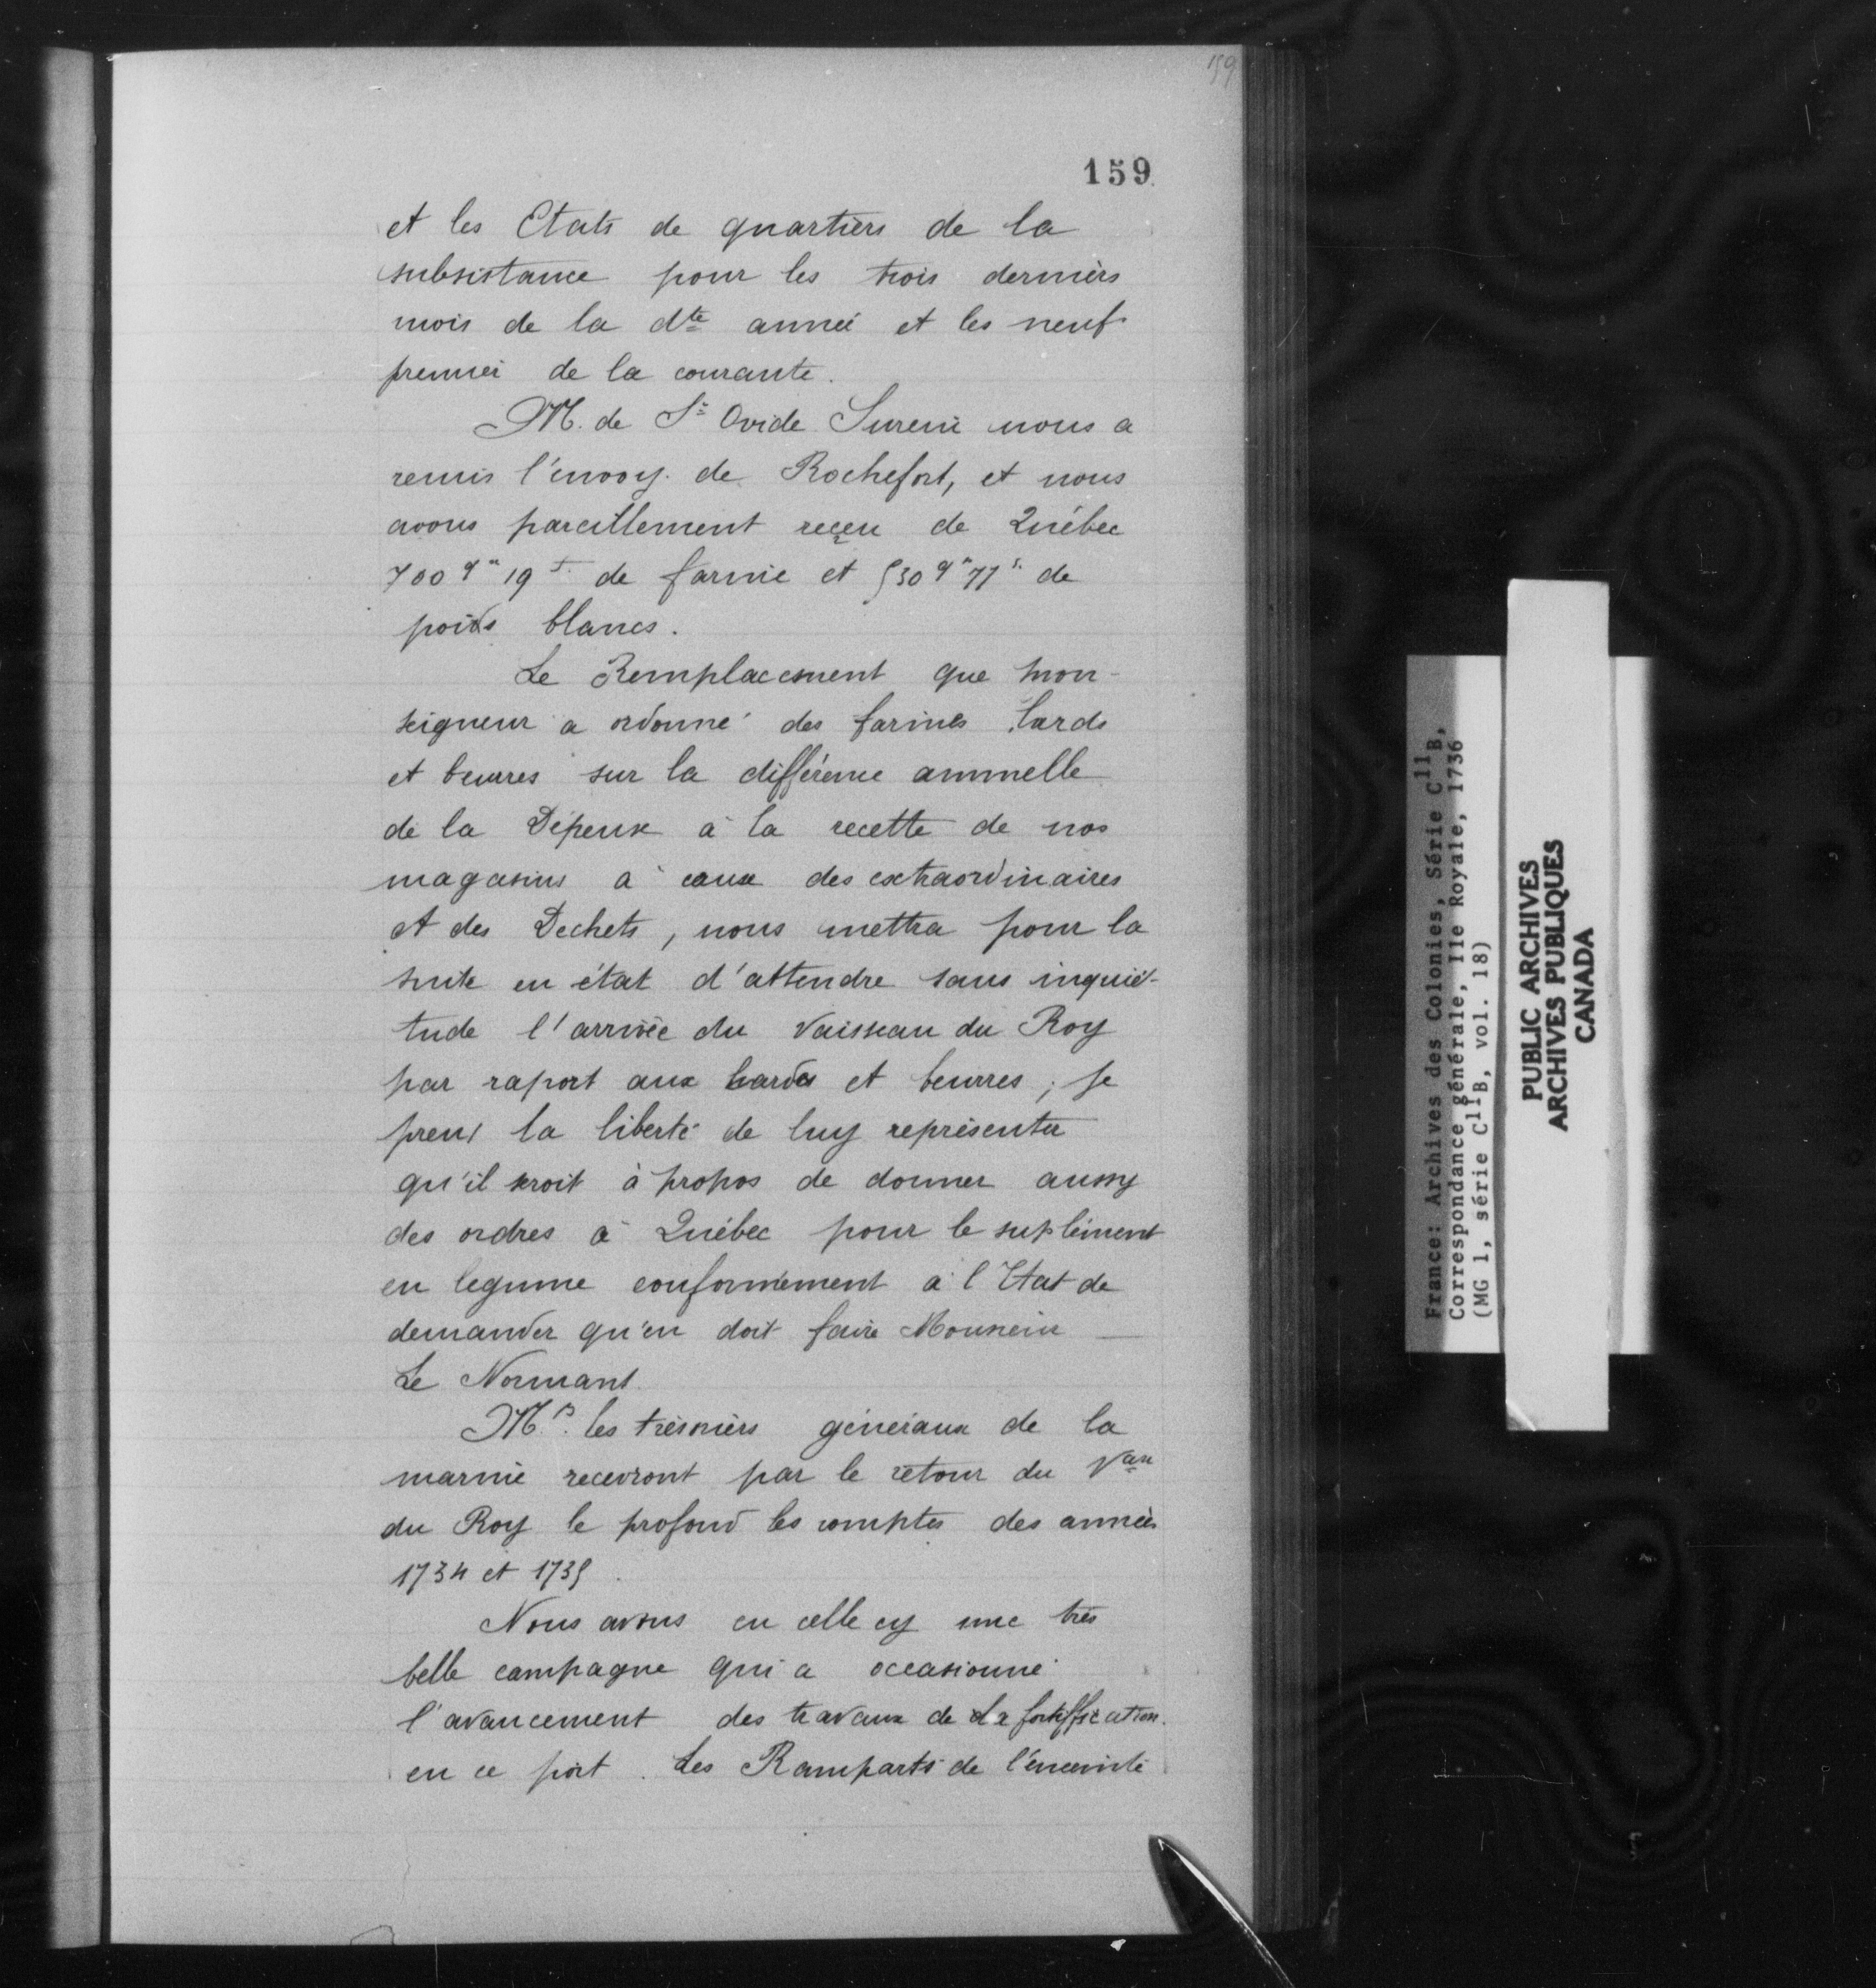 159
159
et les Etats de quartiers de la
subsistance pour les trois derniers
mois de la dte année et les neuf
premier de la courante.
M. de St Ovide nous a
remis l'envoy de Rochefort, et nous
avons pareillement reçeu de Québec
700 qx 19 de farine et 530 qx 77 de
poids blancs.
Le Remplacement que mon-
seigneur a ordonné des farines lards
et beurres sur la différence annuelle
de la Dépense à la recette de nos
magasins à cause des extraordinaires
et des Dechets, nous mettra pour la
suite en état d'attendre sans inquié-
tude l'arrivée du Vaisseau du Roy
par raport aux lards et beurres ; je
prens la liberté de luy représenter
qu'il seroit à propos de donner aussy
des ordres à Québec pour le suplément
en legume conformément à l'Etat de
demander qu'en doit faire Monsieur
Le Normant.
Mrs. les trésoriers généraux de la
marine recevront par le retour du Vau
du Roy le profond les comptes des années
1734 et 1735.
Nous avons eu celle cy une très
belle campagne qui a occasionné
l'avancement des travaux de la fortiffication.
en ce port. Les Ramparts de l'enceinte
France: Archives des Colonies, Série C11B,
Correspondance générale, Ile Royale, 1736
(MG 1, série C11B, vol. 18)
PUBLIC ARCHIVES
ARCHIVES PUBLIQUES
CANADA